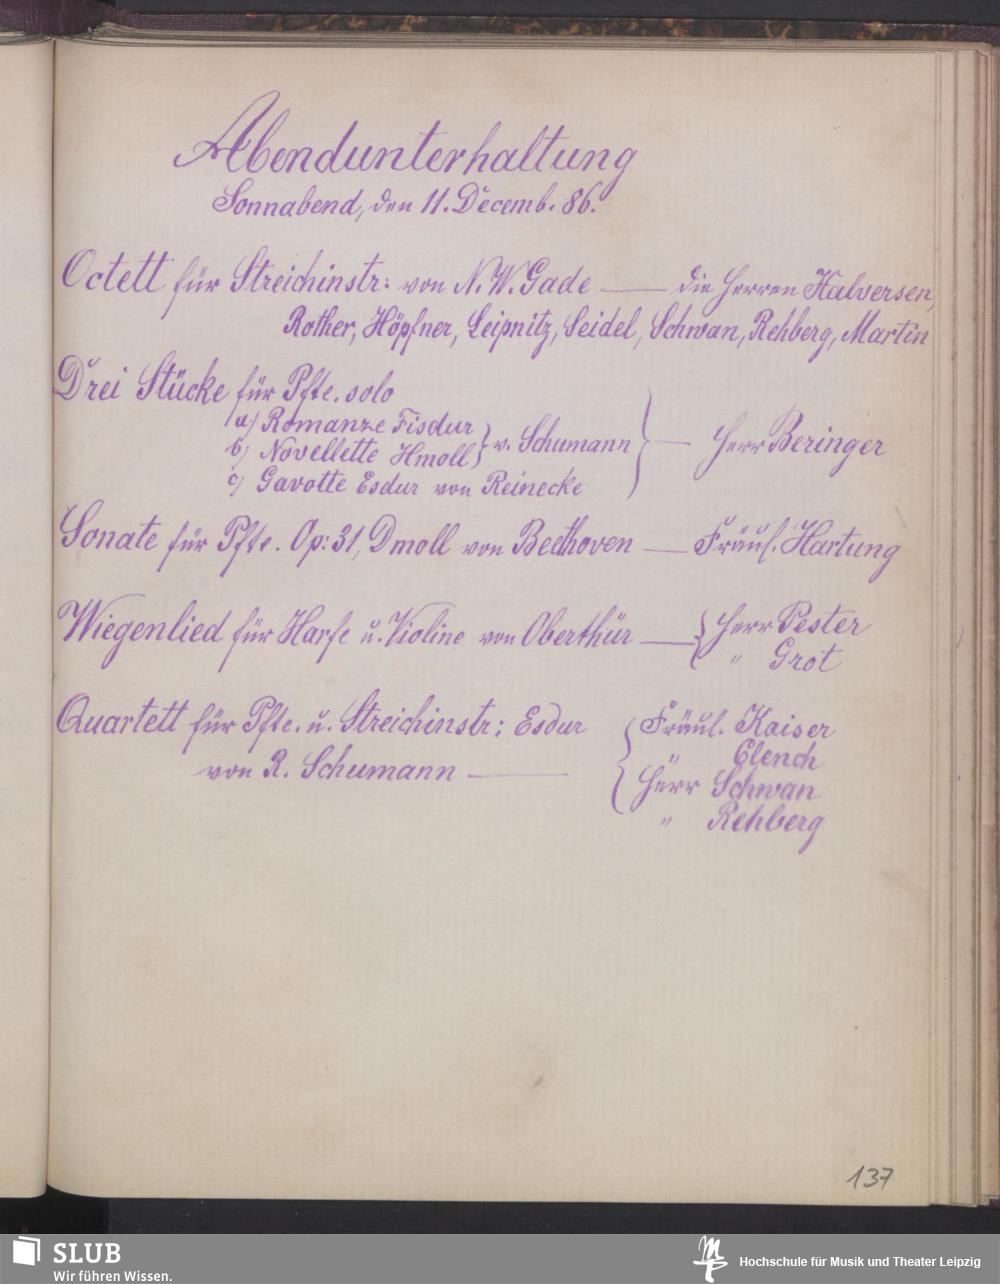 Abendunterhaltung
Sonnabend, den 11. Decemb. 86.
Octett für Streichinstr: von N. W. Gade — die Herren Halversen,
Rother, Höpfner, Leipnitz, Seidel, Schwan, Rehberg, Martin
Drei Stücke für Pfte. solo
a) Romanze Fisdur
b) Novellette Hmoll } v. Schumann } — Herr Beringer
c) Gavotte Esdur von Reinecke
Sonate für Pfte. Op: 31, Dmoll von Beethoven — Fräul. Hartung
Wiegenlied für Harfe u. Violine von Oberthür — { Herr Pester
" Grot
Quartett für Pfte. u. Streichinstr: Esdur { Fräul. Kaiser
" Clench
von R. Schumann — Herr Schwan
" Rehberg
137
SLUB
Wir führen Wissen.
Hochschule für Musik und Theater Leipzig